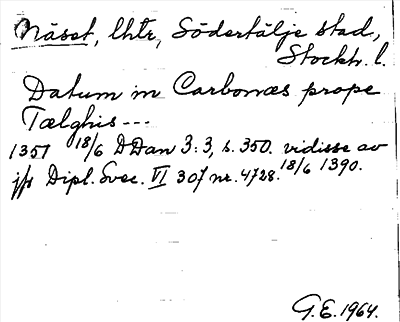 Näset, lhtr, Södertälje stad,
Stockh. l.
Datum in Carbonæs prope
Tælghis ---
1351 18/6 DDan 3:3, s. 350. vidisse av
jfr Dipl. Svec. VI 307 nr. 4728. 18/6 1390.
G.E. 1964.